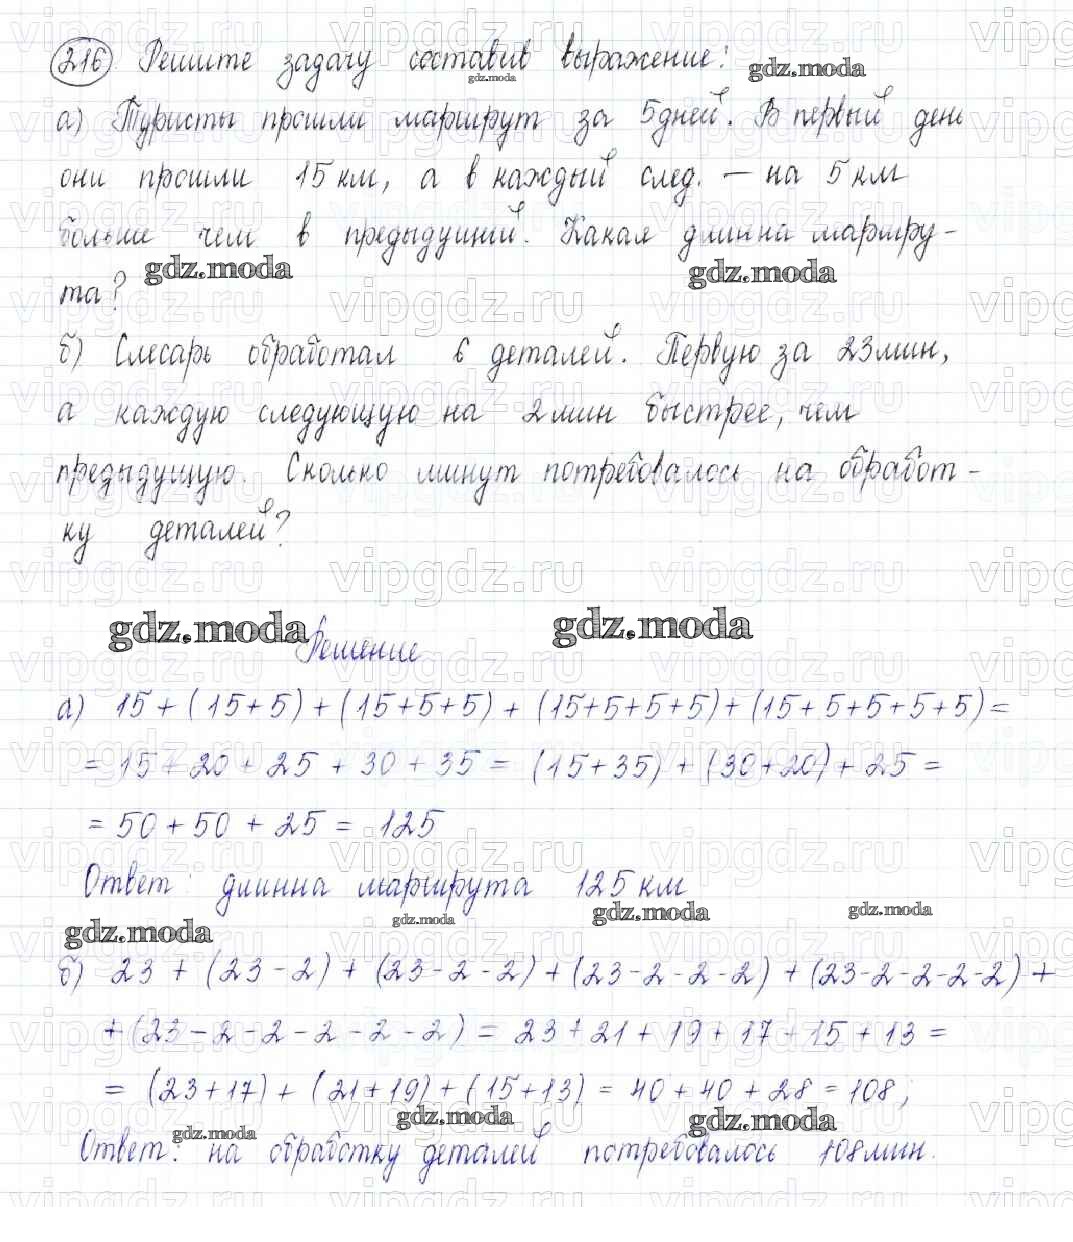 216 Решите задачу составив выражение:
а) Туристы прошли маршрут за 5 дней. В первый день
они прошли 15 км, а в каждый след. — на 5 км
больше чем в предыдущий. Какая длинна маршру-
та?
б) Слесарь обработал 6 деталей. Первую за 23 мин,
а каждую следующую на 2 мин быстрее, чем
предыдущую. Сколько минут потребовалось на обработ-
ку деталей?
Решение
а) 15 + (15+5) + (15+5+5) + (15+5+5+5) + (15+5+5+5+5) =
= 15 + 20 + 25 + 30 + 35 = (15+35) + (30+20) + 25 =
= 50 + 50 + 25 = 125
Ответ: длинна маршрута 125 км
б) 23 + (23-2) + (23-2-2) + (23-2-2-2) + (23-2-2-2-2) +
+ (23-2-2-2-2-2) = 23 + 21 + 19 + 17 + 15 + 13 =
= (23+17) + (21+19) + (15+13) = 40 + 40 + 28 = 108;
Ответ: на обработку деталей потребовалось 108 мин.